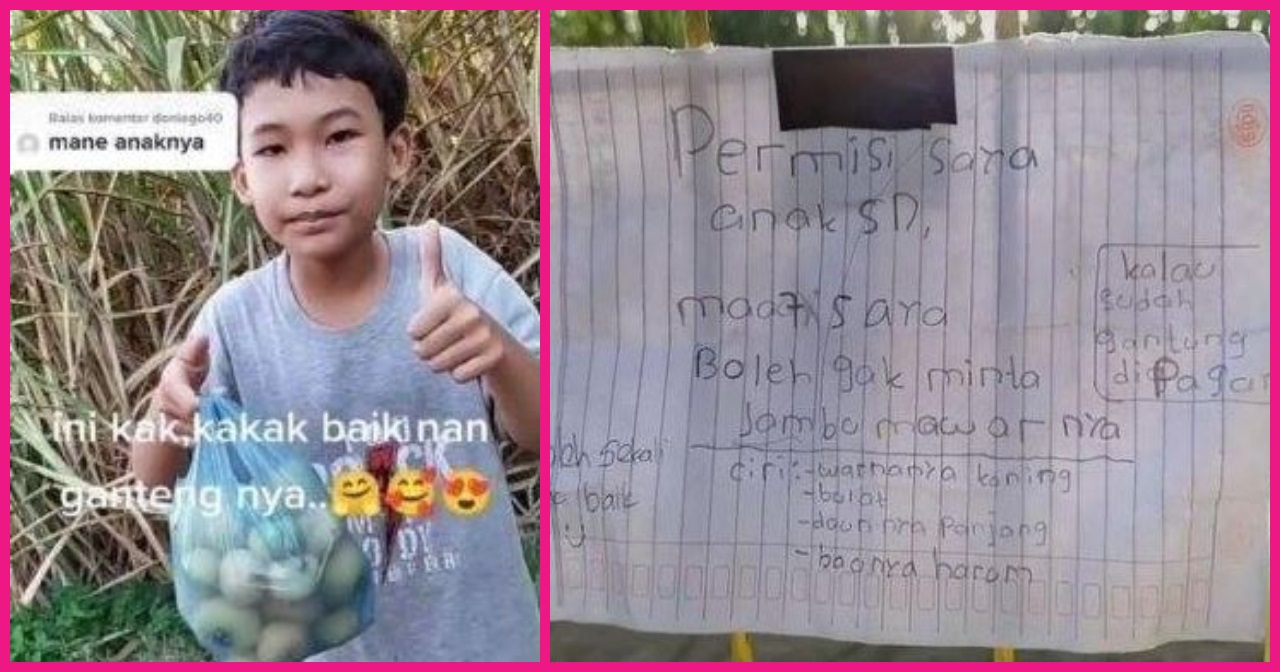 Balas komentar doniego40
mane anaknya
ini kak,kakak baik nan
ganteng nya..🤗🥰😍
Permisi saya
anak SD,
maaf saya
Boleh gak minta
Jambu mawar nya
ciri:-warnanya kuning
-bulat
-daunnya panjang
-baonya harom
kalau
sudah
gantung
di Pagar
sekali
baik